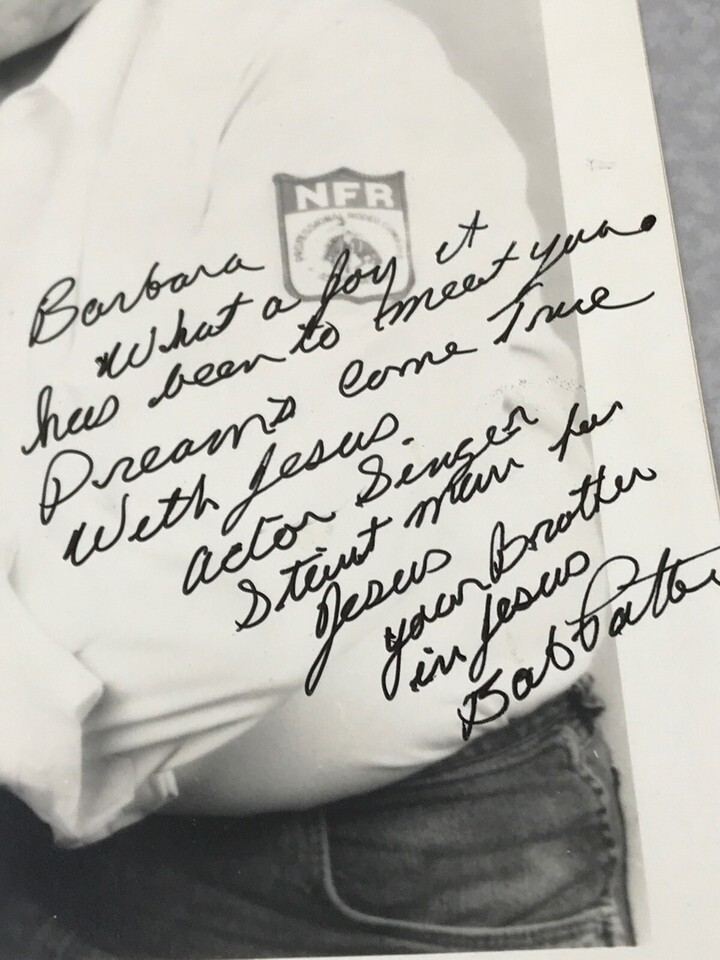 NFR
PROFESSIONAL RODEO COWBOYS
Barbara
What a joy it
has been to meet you.
Dreams come True
With Jesus
actor Singer
Stunt man for
Jesus
your Brother
in Jesus
Bob